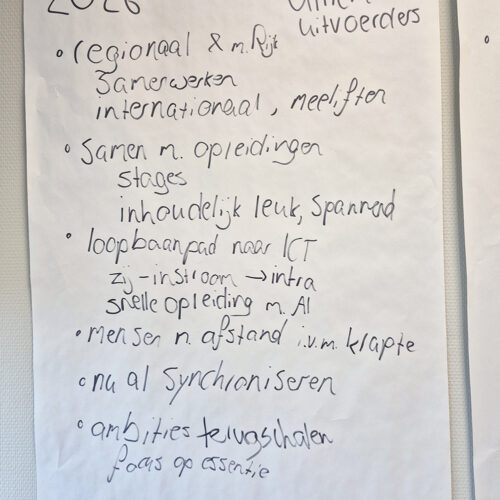 2026
uitvoerders
• regionaal & m. Rijk
samenwerken
internationaal, meeliften
• Samen m. opleidingen
stages
inhoudelijk leuk, spannend
• loopbaanpad naar ICT
zij-instroom → intra
snelle opleiding m. AI
• mensen n. afstand i.v.m. krapte
• nu al synchroniseren
• ambities terugschalen
focus op essentie